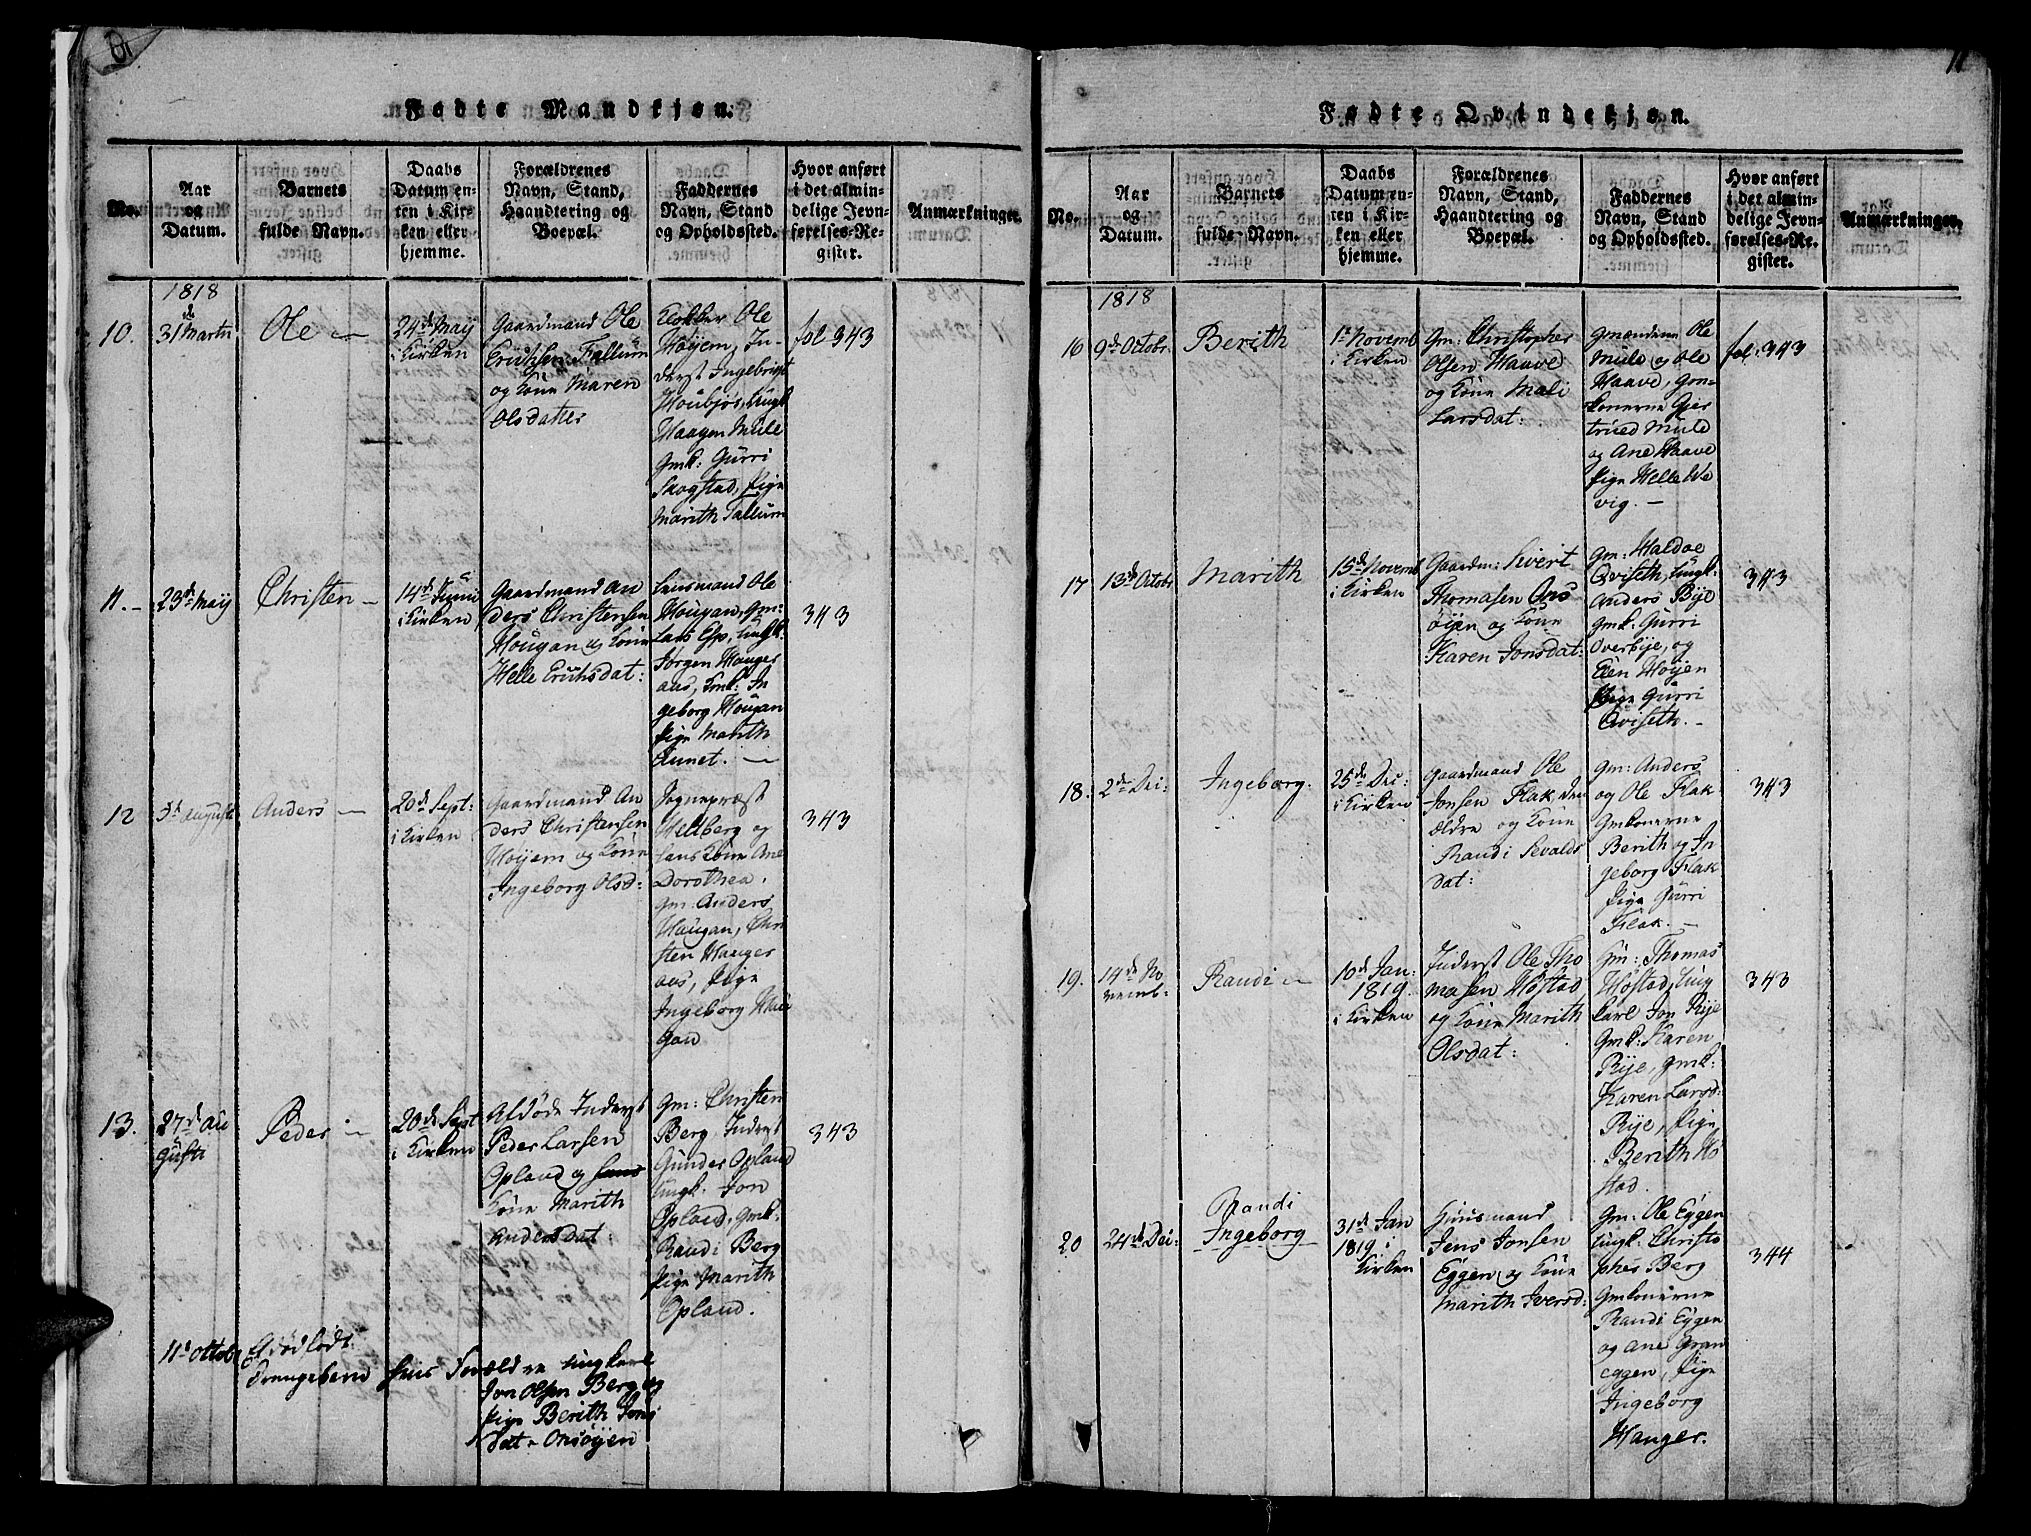 Fødte Mandkjøn.
No.
Aar
og
Datum.
Barnets
fulde Navn.
Daabs
Datum en-
ten i Kir-
ken eller
hjemme.
Forældrenes
Navn, Stand,
Haandtering og
Boepæl.
Faddernes
Navn, Stand
og Opholdssted.
Hvor anført
i det almin-
delige Jevn-
førelses-Re-
gister.
Anmærkninger.
1818
10.
31 Martii
Ole
24de Maij
i Kirken
Gaardmand Ole
Erichsen Fallum
og Kone Maren
Olsdatter
Klokker Ole
Høyem, In-
derst Ingebrigt
Houbjør, Ungk
Haagen Mule
Gmk: Gurri
Skogstad, Pige
Marith Fallum
fol 343
11.
23de Maij
Christen
14de Junii
i Kirken
Gaardmand An
ders Christensen
Hougan og Kone
Helle Erichsdat:
Lensmand Ole
Hougan, Gm:
Lars Esp, Ungk:
Jørgen Hanger
aas, Gmk: In
geborg Hougan
Pige Marith
Aunet.
343
12
3de Augusti
Anders
20de Sept:
i Kirken
Gaardmand An
ders Christensen
Høyem og Kone
Ingeborg Olsd:
Sognepræst
Heltberg og
hans Kone Ane
Dorothea.
Gm: Anders
Haugan, Chri
sten Hanger
aas, Pige
Ingeborg Hau
gan
343
13.
27de Au
gusti
Peder
20de Sept
i Kirken
Afdøde Inderst
Peder Larsen
Opland og hans
Kone Marith
Andersdat:
Gm: Christen
Berg, Inderst
Gunder Opland
Ungk. Jon
Opland, Gmk:
Randi Berg
Pige Marith
Opland.
343
11te Octobr
Et dødfødt
Drengebarn
hvis Forældre Ungkarl
Jon Olsen Berg og
Pige Berith Jons
Dat: Onsøyen
11
Fødte Qvindekjøn.
No.
Aar
og
Datum.
Barnets
fulde Navn.
Daabs
Datum en-
ten i Kir-
ken eller
hjemme.
Forældrenes
Navn, Stand,
Haandtering og
Boepæl.
Faddernes
Navn, Stand
og Opholdssted.
Hvor anført
i det almin-
delige Jevn-
førelses-Re-
gister.
Anmærkninger.
1818
16
9de Octobr
Berith
1te Novemb
i Kirken
Gm: Christopher
Olsen Haave
og Kone Mali
Larsdat:
Gmændene Ole
Mule og Ole
Haave, Gm-
konerne Gjer
trued Mule
og Ane Haave
Pige Helle We
vig.
fol: 343
17
13de Octobr
Marith
15de Novemb
i Kirken
Gaardm: Sivert
Thomasen Ons
øyen og Kone
Karen Jonsdat:
Gm: Haldoe
Qviseth, Ungk:
Anders Bye
Gmk: Gurri
Overbye, og
Elen Høyen
Pige Gurri
Qviseth.
343
18.
2de Dec:
Ingeborg.
25de Dec:
i Kirken
Gaardmand Ole
Jonsen Flak den
ældre og Kone
Randi Sivalds
dat:
Gm: Anders
og Ole Flak
Gmkonerne
Berith og In
geborg Flak
Pige Gurri
Flak.
343
19.
14de No
vemb:
Randi
10de Jan:
1819.
i Kirken
Inderst Ole Tho
masen Høstad
og Kone Marith
Olsdat:
Gm: Thomas
Høstad, Ung
karl Jon Rye
Gmk: Karen
Rye, Gmk:
Karen Larsd:
Rye, Pige
Berith Hø
stad.
343
20
24de Dec:
Randi
Ingeborg
31de Jan
1819 i
Kirken
Huusmand
Jens Jonsen
Eggen og Kone
Marith Iversd:
Gm: Ole Eggen
Ungk: Christo
pher Berg
Gmkonerne
Randi Eggen
og Ane Gran
eggen, Pige
Ingeborg
Hanger.
344